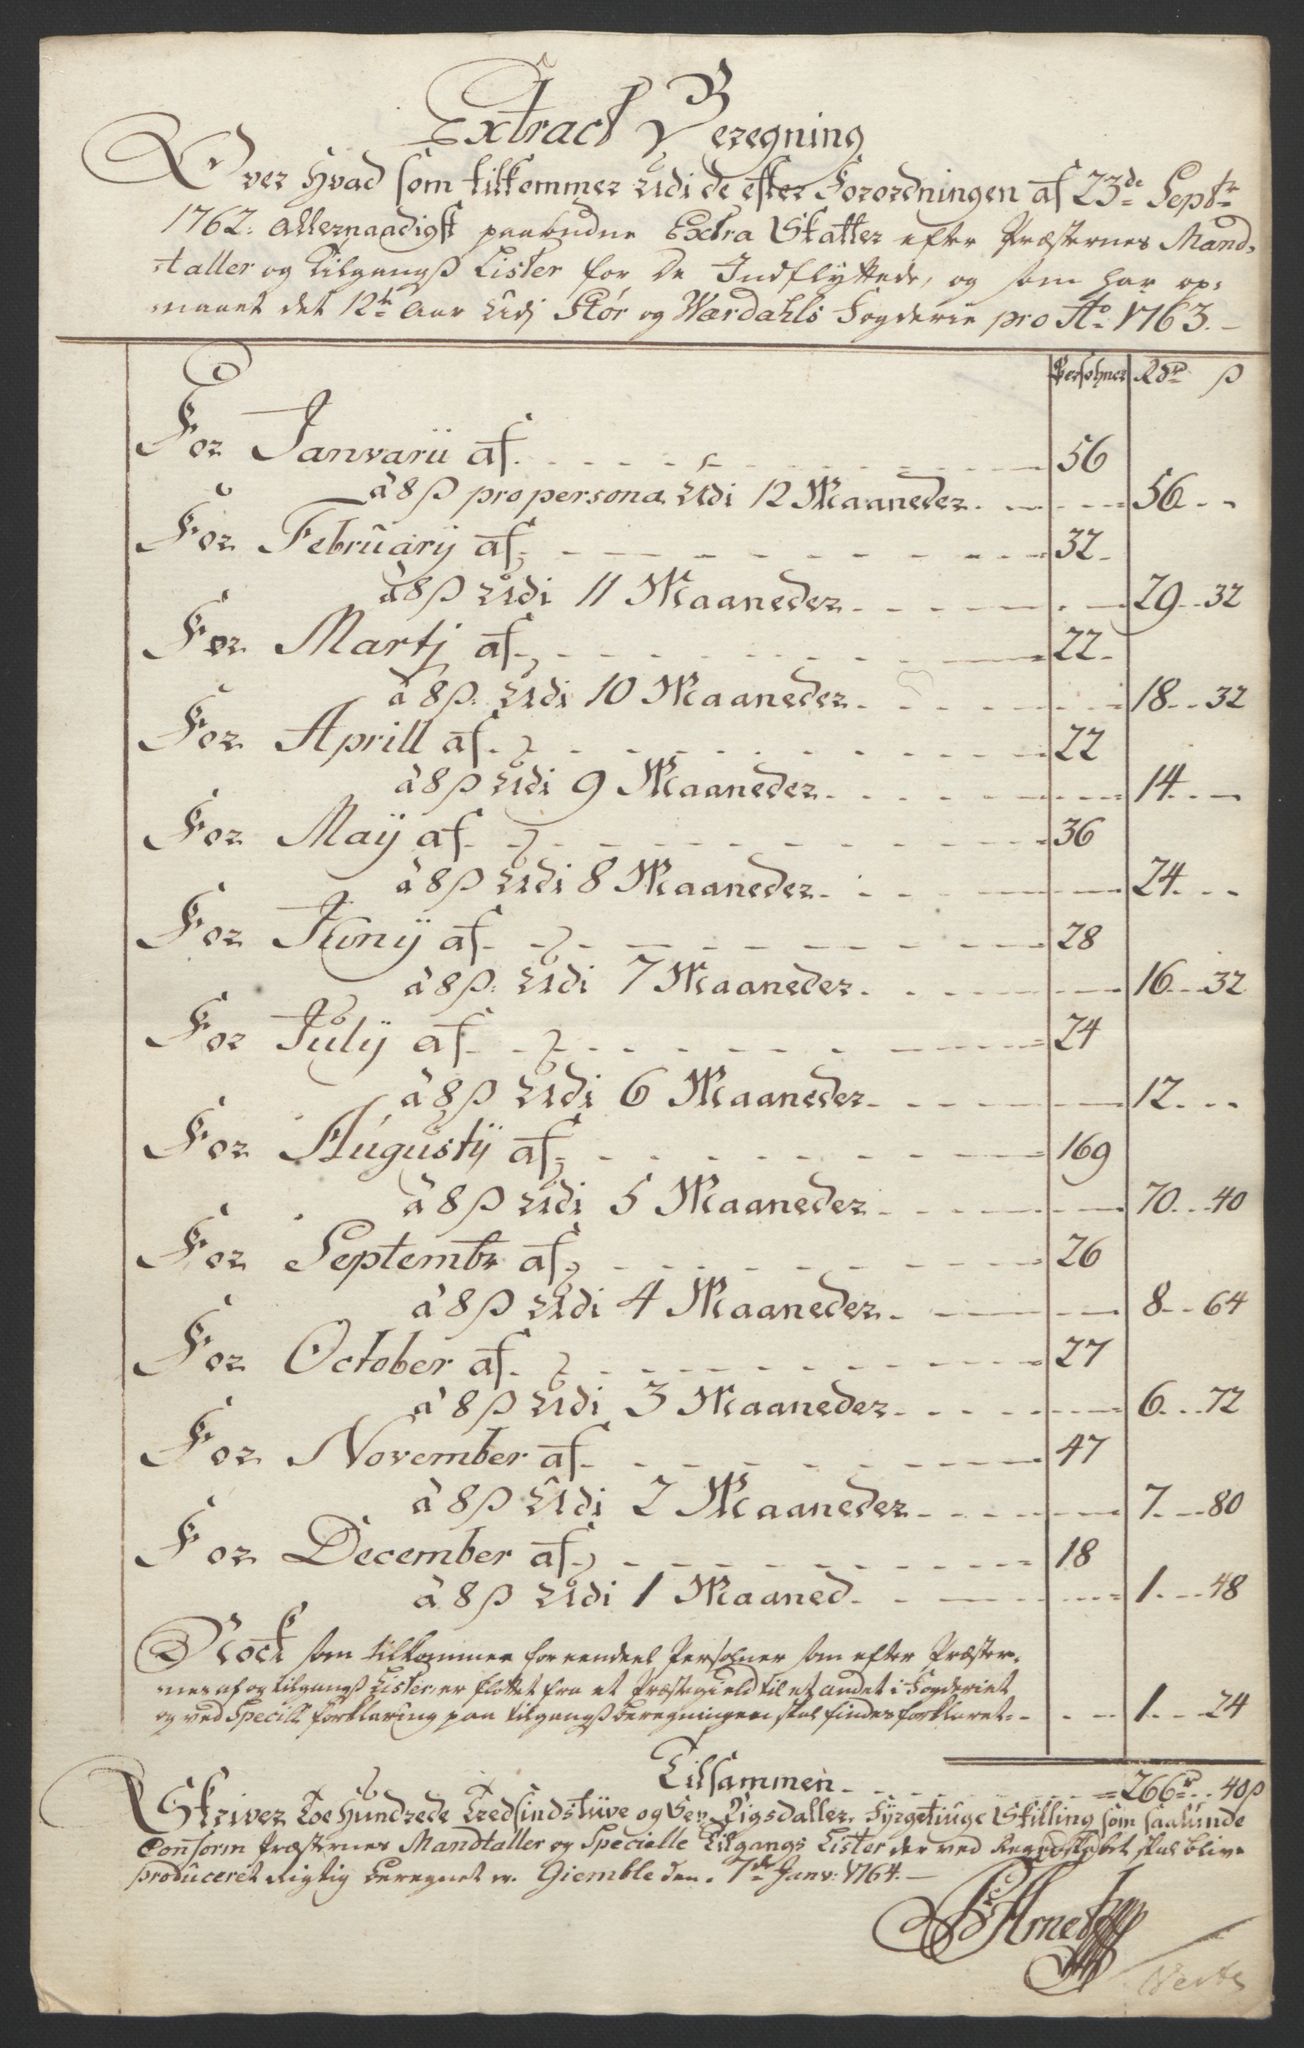 Extract Beregning
Over hvad som tilkommer udi de efter Forordningen af 23de Septr
1762. allernaadigst paabudne Extra Skatter efter Præsternes Mand-
taller og Tilgangs Lister for de Indflyttede, og som har op-
naaet det 12te Aar udj Stør og Værdahls Fogderie pro Ao 1763.
Persohner Rdr ß
For Janvarii af 56
à 8 ß pro persona udi 12 Maaneder 56
For February af 32
à 8 ß udi 11 Maaneder 29 32
For Martj af 22
à 8 ß udi 10 Maaneder 18 32
For Aprill af 22
à 8 ß udi 9 Maaneder 14
For Maÿ af 36
à 8 ß udi 8 Maaneder 24
For Junÿ af 28
à 8 ß udi 7 Maaneder 16 32
For Julÿ af 24
à 8 ß udi 6 Maaneder 12
For Augustÿ af 169
à 8 ß udi 5 Maaneder 70 40
For Septembr af 26
à 8 ß udi 4 Maaneder 8 64
For October af 27
à 8 ß udi 3 Maaneder 6 72
For November af 47
à 8 ß udi 2 Maaneder 7 80
For December af 18
à 8 ß udi 1 Maaned 1 48
Nock som tilkommer for eendeel Persohner som efter Præster-
nes af og tilgangs Lister er fløttet fra et Præstegield til et andet i Fogderiet
og ved Speciell forklaring paa tilgangs beregningen skal findes forklaret 1 24
Tilsammen 266 rd 40 ß
Skriver Toe Hundrede Tredsindstiuve og Sex Rigsdaller, Fyrgetiuge Skilling som saalunde
Conform Præsternes Mandtaller og Specielle Tilgangs Lister der ved Regnskabet skal blive
produceret Rigtig beregnet er. Giemble den 7de Janv: 1764.
Arnet
Verte